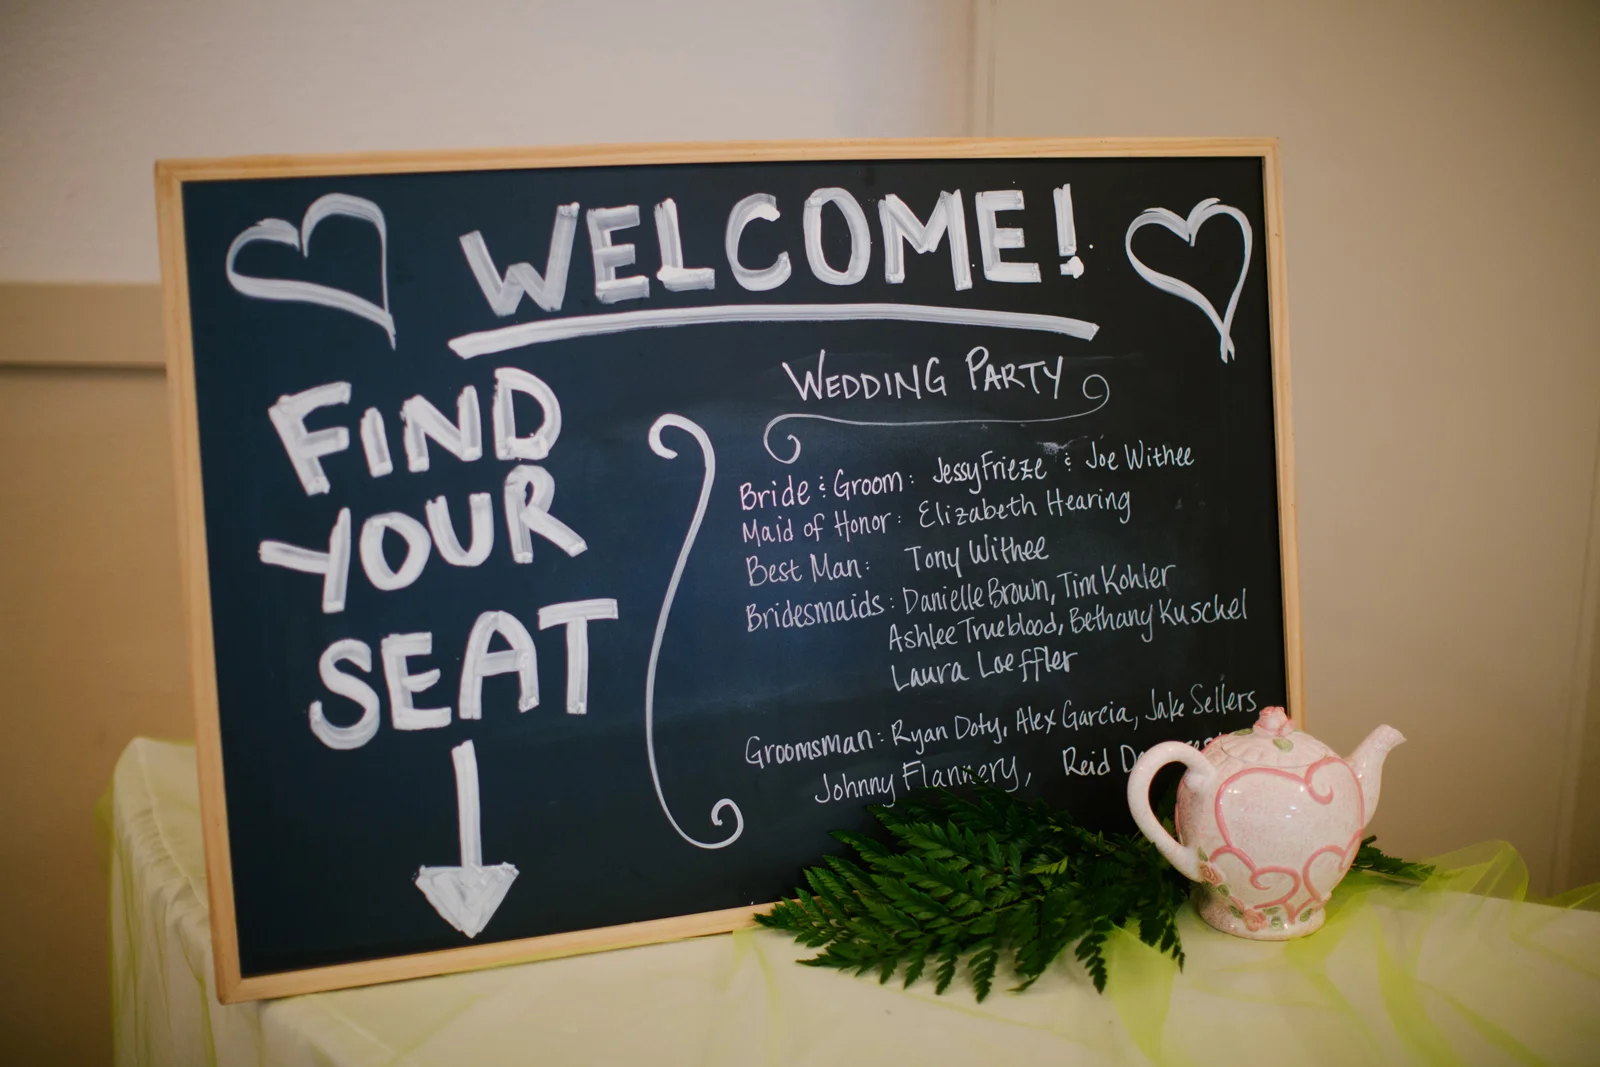 WELCOME!
FIND
YOUR
SEAT
WEDDING PARTY
Bride & Groom: Jessy Frieze & Joe Withee
Maid of Honor: Elizabeth Hearing
Best Man: Tony Withee
Bridesmaids: Danielle Brown, Tim Kohler
Ashlee Trueblood, Bethany Kuschel
Laura Loeffler
Groomsman: Ryan Doty, Alex Garcia, Jake Sellers
Johnny Flannery, Reid